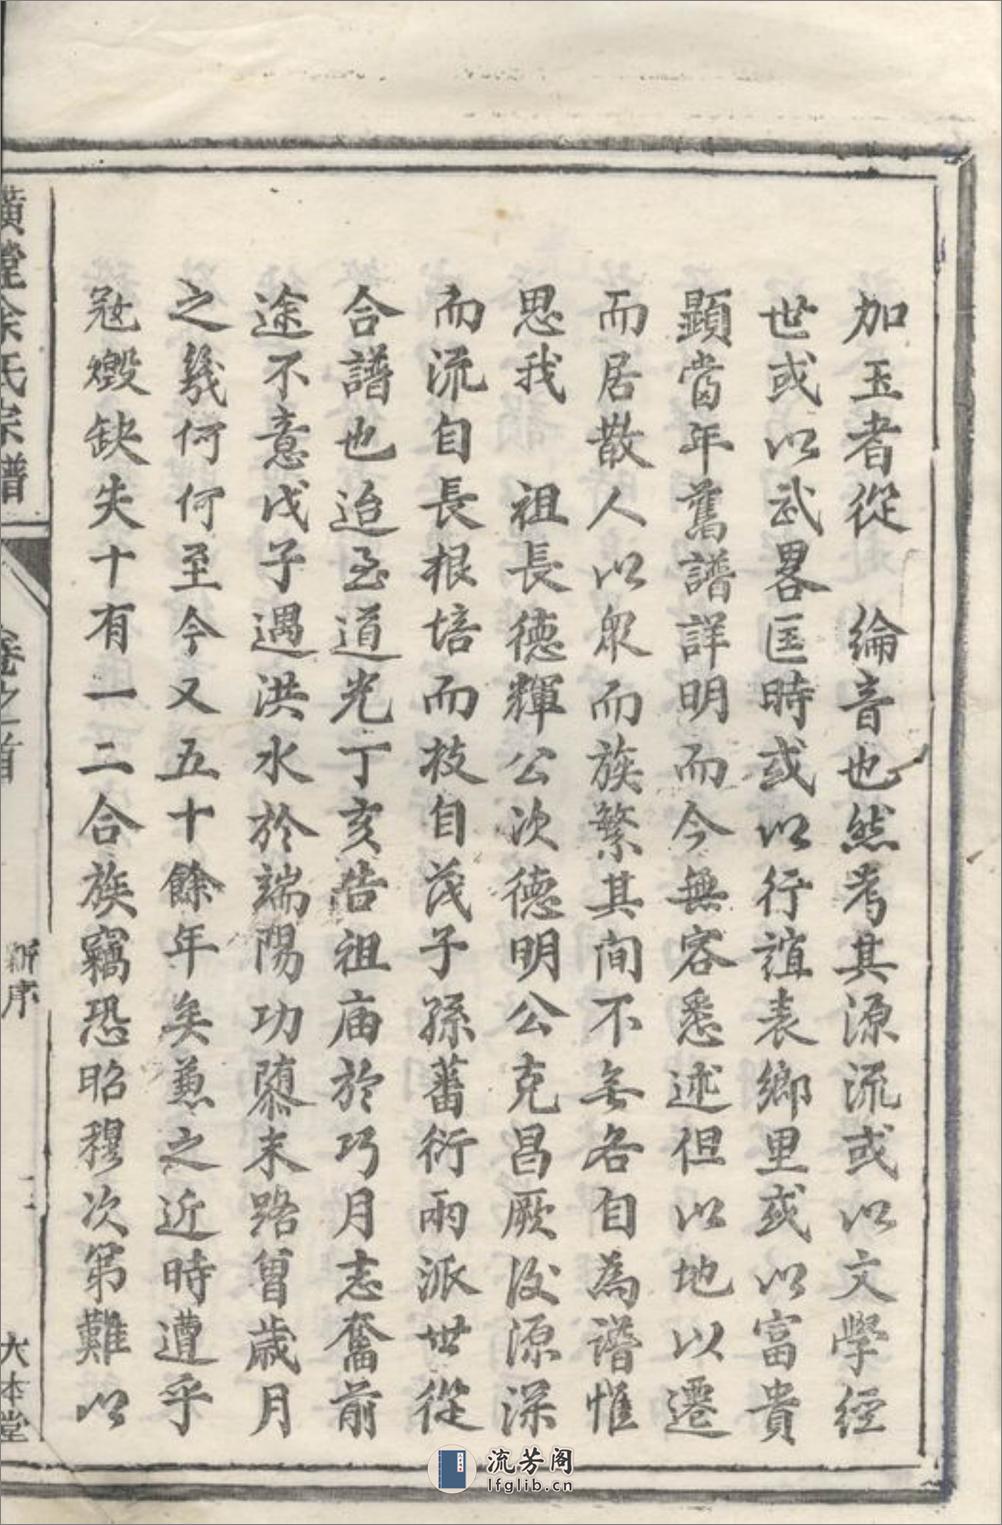 加玉者從　綸音也然考其源流或以文學經
世或以武畧匡時或以行誼表鄉里或以富貴
顯當年舊譜詳明而今無容悉述但以地以遷
而居散人以眾而族繁其間不無各自為譜惟
思我　祖長德輝公次德明公克昌厥後源深
而流自長根培而枝自茂子孫蕃衍兩派世從
合譜也迨至道光丁亥告祖庙於巧月志奮前
途不意戊子遇洪水於端陽功隳末路曾歲月
之幾何何至今又五十餘年矣兼之近時遭乎
冦燬缺失十有一二合族竊恐昭穆次第難以
余氏宗譜
卷之首
新序
大本堂
流芳阁
lfglib.cn